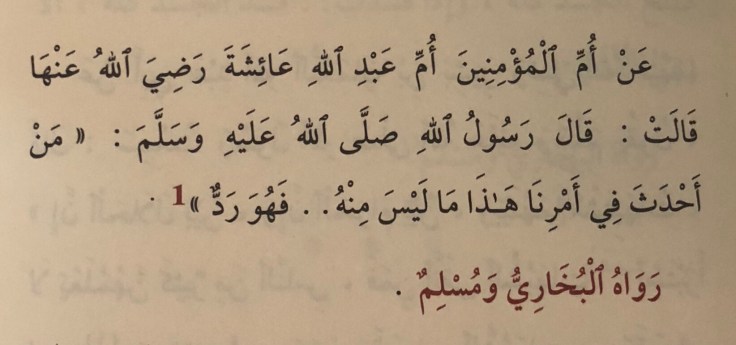 عَنْ أُمِّ ٱلْمُؤْمِنِينَ أُمِّ عَبْدِ ٱللهِ عَائِشَةَ رَضِيَ ٱللهُ عَنْهَا
قَالَتْ : قَالَ رَسُولُ ٱللهِ صَلَّى ٱللهُ عَلَيْهِ وَسَلَّمَ : « مَنْ
أَحْدَثَ فِي أَمْرِنَا هَـٰذَا مَا لَيْسَ مِنْهُ . . فَهُوَ رَدٌّ »1 .
رَوَاهُ ٱلْبُخَارِيُّ وَمُسْلِمٌ .